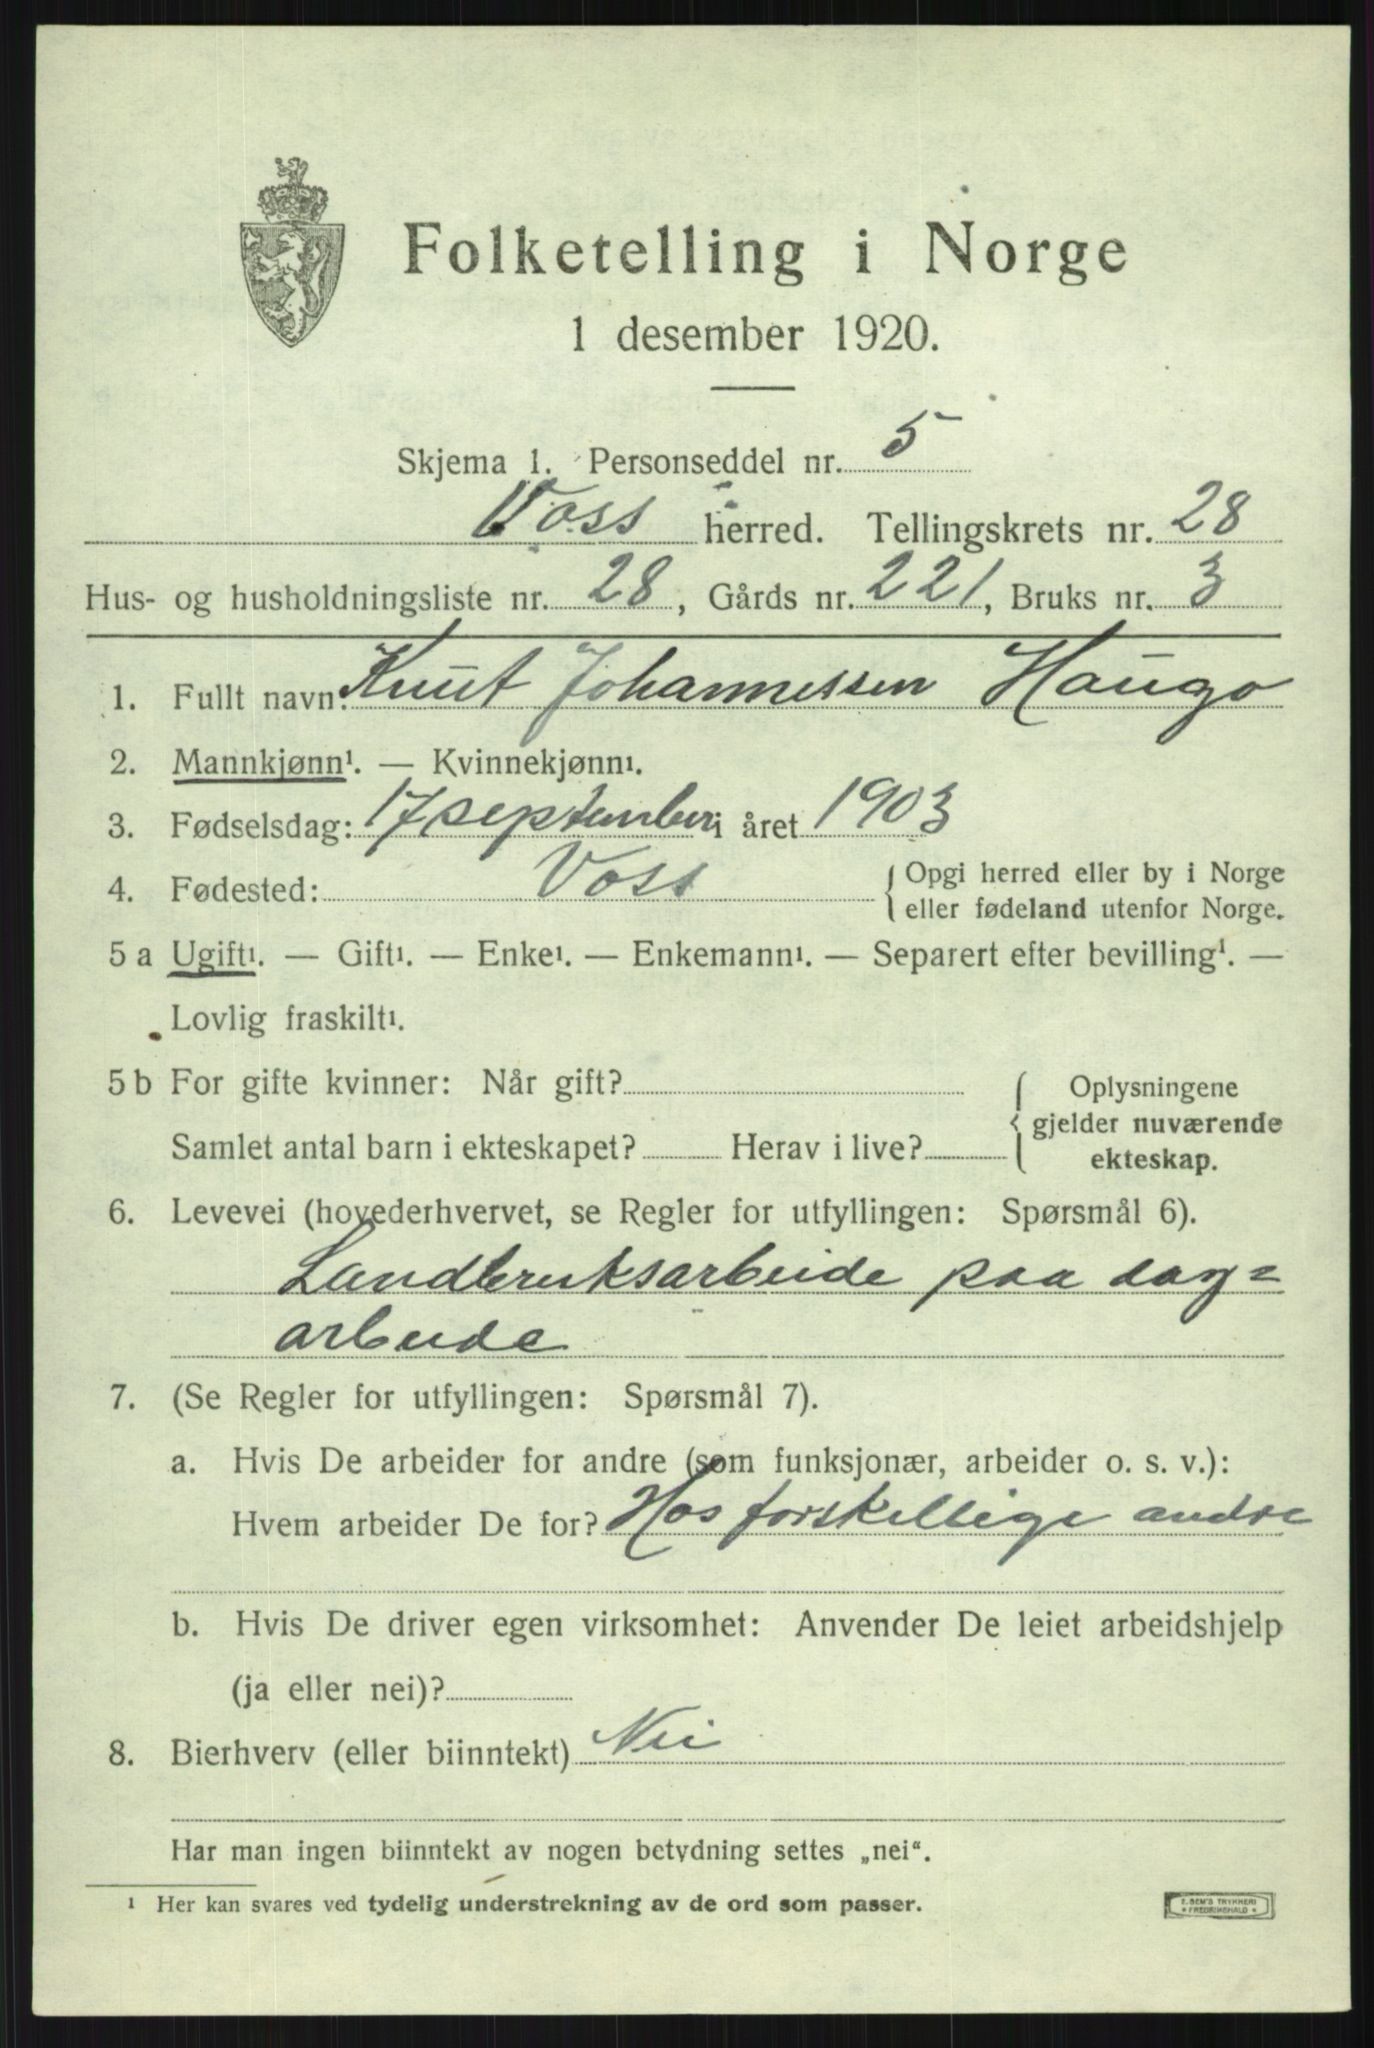 Folketelling i Norge
1 desember 1920.
Skjema 1. Personseddel nr. 5
Voss herred. Tellingskrets nr. 28
Hus- og husholdningsliste nr. 28, Gårds nr. 221, Bruks nr. 3
1. Fullt navn: Knut Johannessen Haugo
2. Mannkjønn¹. — Kvinnekjønn¹.
3. Fødselsdag: 17 september i året 1903
4. Fødested: Voss {Opgi herred eller by i Norge
eller fødeland utenfor Norge.
5 a Ugift¹. — Gift¹. — Enke¹. — Enkemann¹. — Separert efter bevilling¹. —
Lovlig fraskilt¹.
5 b For gifte kvinner: Når gift? {Oplysningene
gjelder nuværende
Samlet antal barn i ekteskapet? Herav i live? ekteskap.
6. Levevei (hovederhvervet, se Regler for utfyllingen: Spørsmål 6).
Landbruksarbeide paa dag=
arbeide
7. (Se Regler for utfyllingen: Spørsmål 7).
a. Hvis De arbeider for andre (som funksjonær, arbeider o. s. v.):
Hvem arbeider De for? Hos forskellige andre
b. Hvis De driver egen virksomhet: Anvender De leiet arbeidshjelp
(ja eller nei)?
8. Bierhverv (eller biinntekt) Nei
Har man ingen biinntekt av nogen betydning settes „nei“.
¹ Her kan svares ved tydelig understrekning av de ord som passer.
E. SEM'S TRYKKERI
* FREDRIKSHALD *